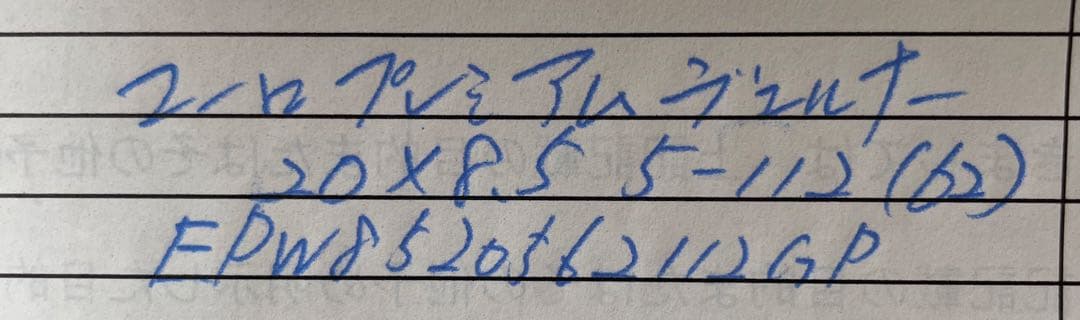 ユーロプレミアム ヴェルナー
20×8.5 5-112 (62)
EPW8520562112GP